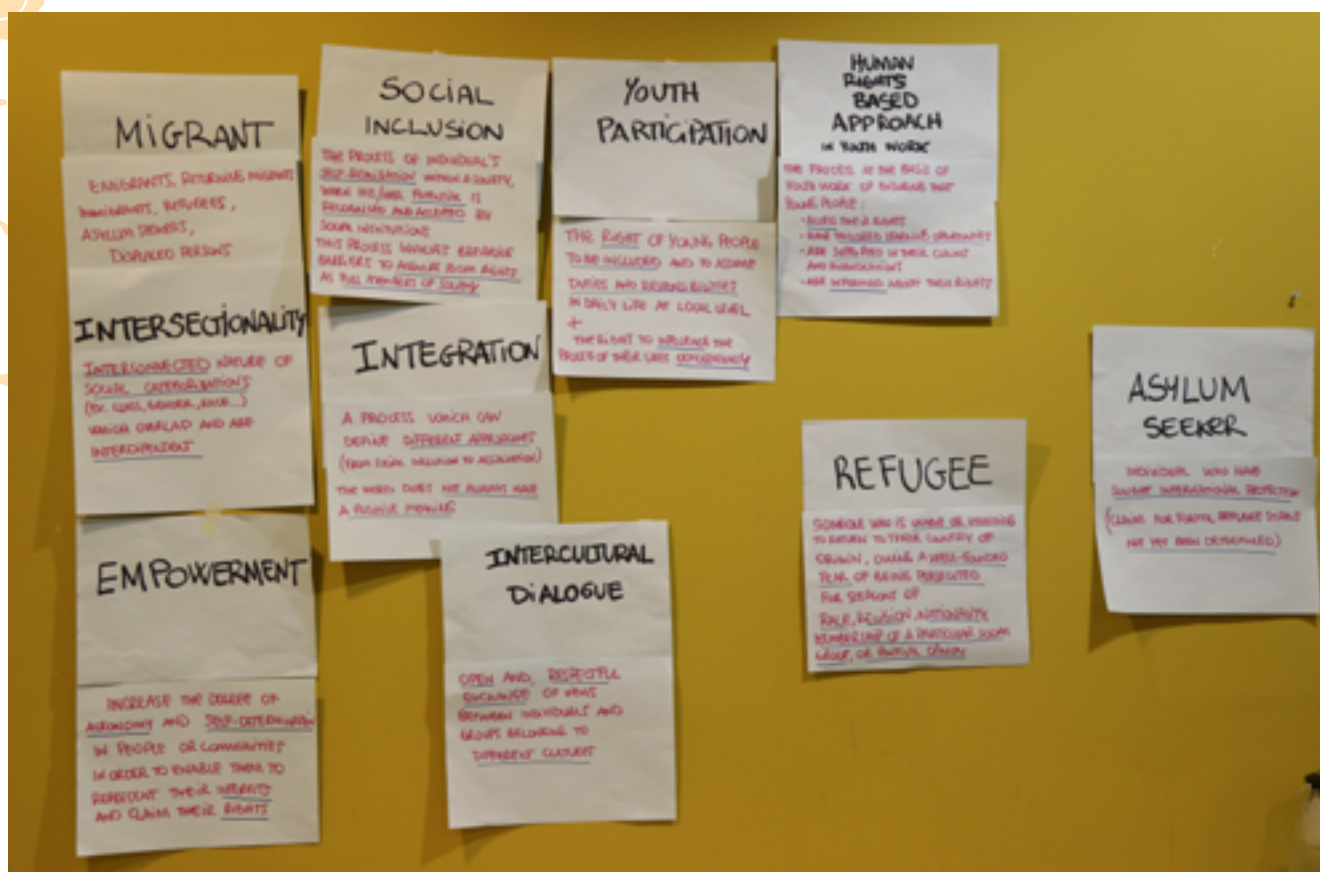 MIGRANT
EMIGRANTS, RETURNING MIGRANTS
IMMIGRANTS, REFUGEES,
ASYLUM SEEKERS,
DISPLACED PERSONS
INTERSECTIONALITY
INTERCONNECTED NATURE OF
SOCIAL CATEGORIZATIONS
(EX. CLASS, GENDER, RACE...)
WHICH OVERLAP AND ARE
INTERDIPENDENT
EMPOWERMENT
INCREASE THE DEGREE OF
AUTONOMY AND SELF-DETERMINATION
IN PEOPLE OR COMMUNITIES
IN ORDER TO ENABLE THEM TO
REPRESENT THEIR INTERESTS
AND CLAIM THEIR RIGHTS
SOCIAL
INCLUSION
THE PROCESS OF INDIVIDUAL'S
SELF-REALISATION WITHIN A SOCIETY,
WHEN HIS/HER POTENTIAL IS
RECOGNISED AND ACCEPTED BY
SOCIAL INSTITUTIONS.
THIS PROCESS INVOLVES BREAKING
BARRIERS TO RIGHTS
AS FULL MEMBERS OF SOCIETY
INTEGRATION
A PROCESS WHICH CAN
DEFINE DIFFERENT APPROACHES
(FROM SOCIAL INCLUSION TO ASSIMILATION)
THE WORD DOES NOT ALWAYS HAVE
A POSITIVE MEANING
INTERCULTURAL
DIALOGUE
OPEN AND, RESPECTFUL
EXCHANGE OF VIEWS
BETWEEN INDIVIDUALS AND
GROUPS BELONGING TO
DIFFERENT CULTURES
YOUTH
PARTICIPATION
THE RIGHT OF YOUNG PEOPLE
TO BE INCLUDED AND TO ASSUME
DUTIES AND RESPONSIBILITIES
IN DAILY LIFE AT LOCAL LEVEL
+
THE RIGHT TO INFLUENCE THE
OF THEIR LIVES DEMOCRATICALLY
HUMAN
RIGHTS
BASED
APPROACH
IN YOUTH WORK
THE PROCESS AT THE BASIS OF
YOUTH WORK OF ENSURING THAT
YOUNG PEOPLE:
- THEIR RIGHTS
- HAVE TAILORED LEARNING OPPORTUNITIES
- ARE SUPPORTED IN THEIR CLAIMS
AND
- ARE INFORMED ABOUT THEIR RIGHTS
REFUGEE
SOMEONE WHO IS UNABLE OR UNWILLING
TO RETURN TO THEIR COUNTRY OF
ORIGIN, OWING A WELL-FOUNDED
FEAR OF BEING PERSECUTED
FOR REASONS OF
RACE, RELIGION, NATIONALITY
MEMBERSHIP OF A PARTICULAR SOCIAL
GROUP, OR POLITICAL OPINION
ASYLUM
SEEKER
INDIVIDUAL WHO HAVE
SOUGHT INTERNATIONAL PROTECTION
(CLAIM FOR FORMAL REFUGEE STATUS
NOT YET BEEN DETERMINED)